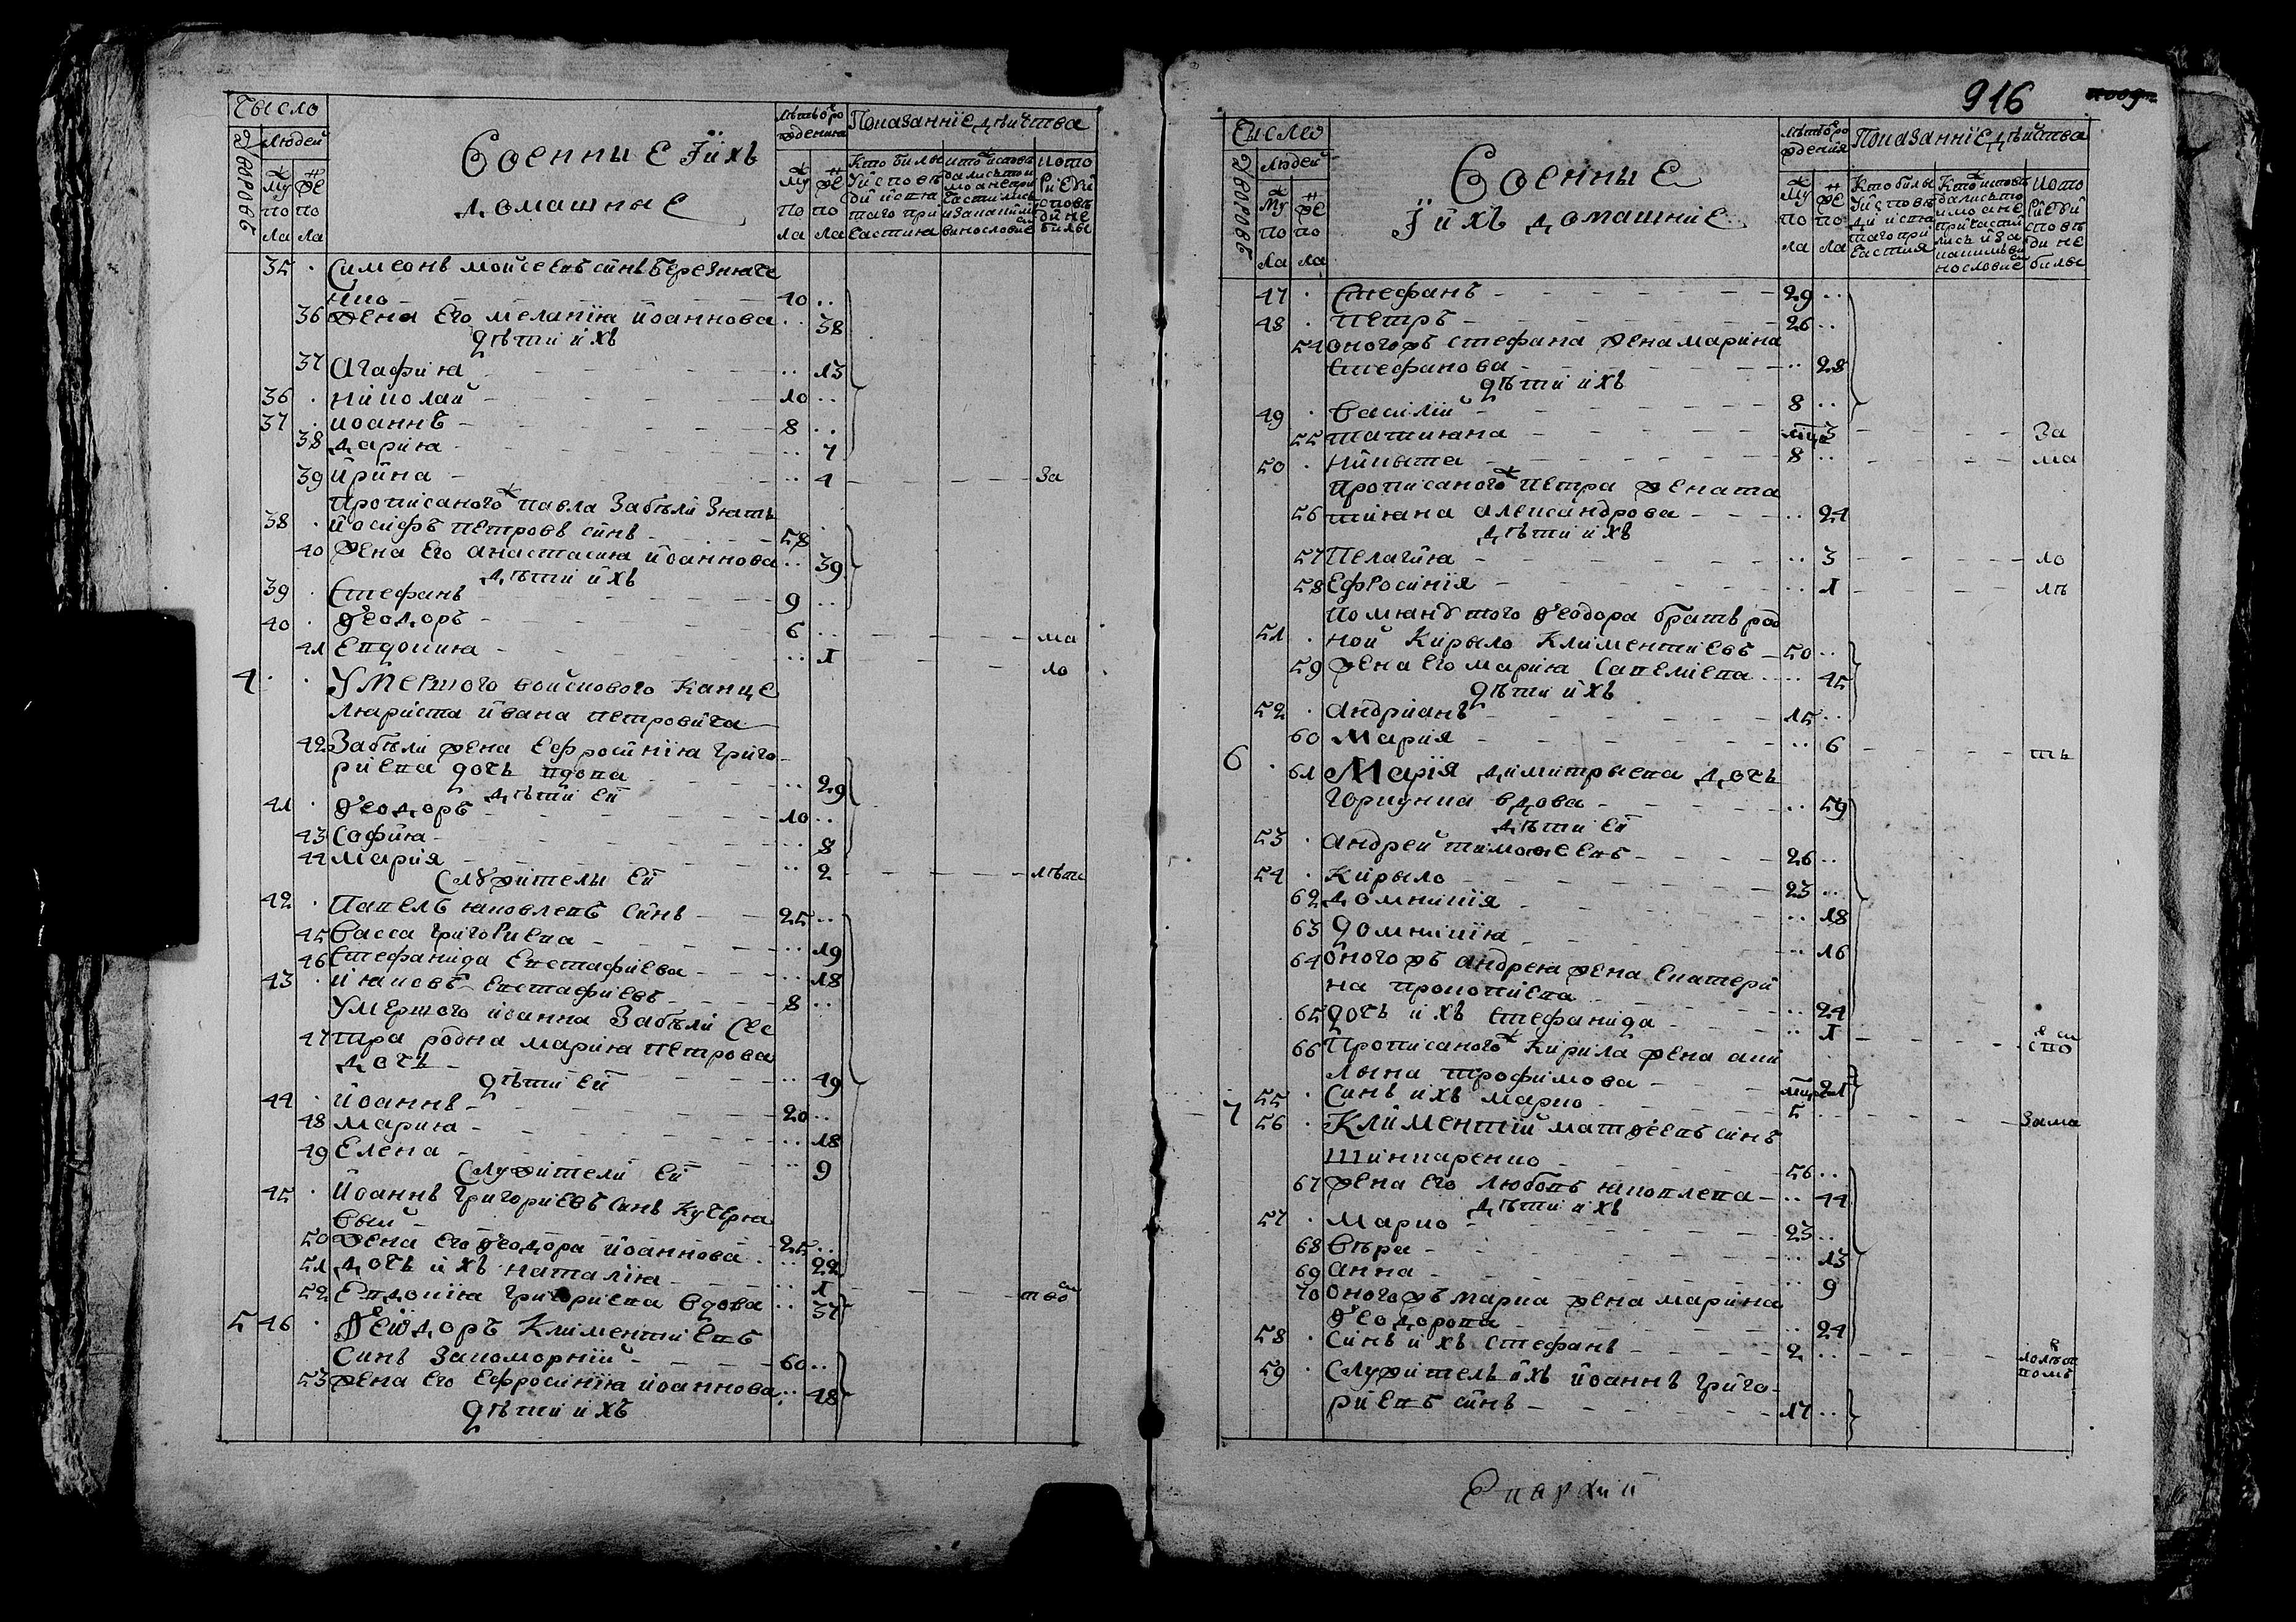 Число
Дворовъ
Людей
Муж по ла
Жен по ла
Военные И ихъ
домашные
Лѣтъ ѿ ро
жденія
Муж по ла
Жен по ла
Показанніе дѣйства
35 Симеонъ мойсеевъ синъ Березюче
нко 40
36 жена Его меланїя йоаннова 38
дѣти ихъ
37 Агафия 15
36 николай 10
37 иоаннъ 8
38 дария 7
39 ирина 4 За
прописаного ж павла Забѣли Зять
38 йосифъ петровъ синъ 58
40 жена Его анастасия йоаннова 39
дѣти ихъ
39 Стефанъ 9
40 Ѳеодоръ 6 ма
41 Евдокия 1 ло
4 Умершого войскового канце
ляриста йвана петровича
42 Забѣли жена Ефросинїя григо
риева дочъ вдова 29
дѣти Ей
41 Ѳеодоръ 10
43 София 8
44 мария 2 лѣтн
Служителы Ей
42 Павелъ яковлевъ синъ 25
45 Васса григориева 19
46 Стефанида Евстафиева 18
43 йяковъ Евстафиевъ 8
Умершого иоанна Забѣли Сес
47 тра родна мария петрова
дочъ 49
дѣти Ей
44 йоаннъ 20
48 мария 18
49 Елена 9
Служители Ей
45 йоаннъ григориевъ синъ кучеря
вый 25
50 жена Его Ѳеодора йоаннова 22
51 дочъ ихъ наталїя 1
52 Евдокїя григориева вдова 37
5 46 Ѳеѡдоръ Климентиевъ
Синъ Закоморний 60
53 жена Его Ефросинїя йоаннова 48
дѣти ихъ
916
Число
Дворовъ
Людей
Муж по ла
Жен по ла
Военные
И ихъ домашние
Лѣтъ ѿ ро
ждения
Муж по ла
Жен по ла
Показанніе дѣйства
47 Стефанъ 29
48 петръ 26
54 оногожъ стефана жена марина
Стефанова 28
дѣти ихъ
49 Василий 8
55 татияна 3 За
50 Никита 8 ма
прописаного ж петра жена та
56 тияна александрова 24
дѣти ихъ
57 Пелагия 3 ло
58 Ефросинїя 1 лѣ
Помянутого Ѳеодора братъ род
51 ной Кирыло Климентиевъ 50
59 жена его мария Савелиева 45
дѣти ихъ
52 андриянъ 15
60 Мария 6 тъ
6 61 Марїя димитрыева дочъ
горкунка вдова 59
дѣти Ей
53 андрей тимоѳеевъ 26
54 Кирыло 23
62 домникїя 18
63 домникїя 16
64 оногожъ андрея жена Екатери
на прокопиева 24
65 дочъ ихъ Стефанида 1
66 Прописаного ж Кирила жена аки
лына трофимова 21
55 Синъ ихъ марко 5
7 56 Климентий матѳеевъ синъ Зама
Шинкаренко 56
67 жена его любовъ яковлева 44
дѣти ихъ
57 Марко 23
68 Вѣра 13
69 Анна 9
70 оногожъ марка жена марина
Ѳеодорова 24
58 Синъ ихъ Стефанъ 2
59 Служитель ихъ йоаннъ григо
риевъ синъ 17